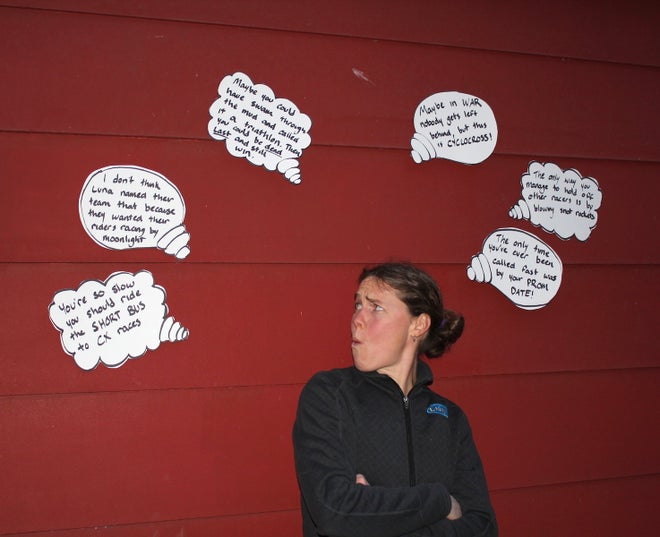 Maybe you could
have swam through
the mud and called
it a triathlon. Then
you could be dead
last and still
win.
Maybe in WAR
nobody gets left
behind, but this
is CYCLOCROSS!
I don't think
Luna named their
team that because
they wanted their
riders racing by
moonlight
The only way you
manage to hold off
other racers is by
blowing snot rockets
The only time
you've ever been
called fast was
by your PROM
DATE!
You're so slow
you should ride
the SHORT BUS
to CX races